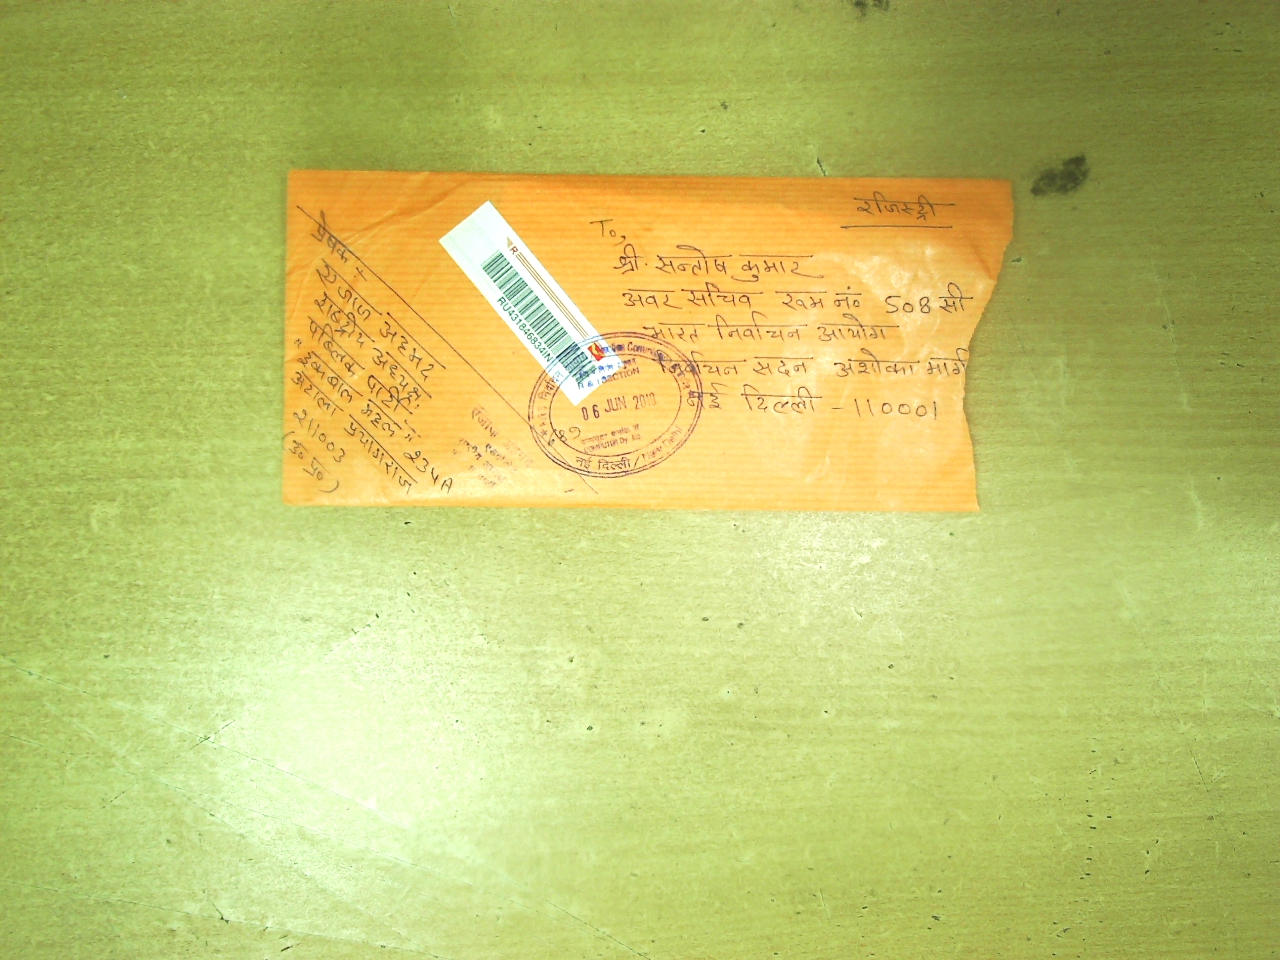 रजिस्ट्री
To,
श्री. सन्तोष कुमार
अवर सचिव रूम नं० 508 सी
भारत निर्वाचन आयोग
निर्वाचन सदन अशोका मार्ग
नई दिल्ली - 110001
प्रेषक :-
एजाज अहमद
राष्ट्रीय अध्यक्ष
पब्लिक पार्टी
"इकबाल महल" 234A
अटाला प्रयागराज
211003
(उ० प्र०)
R
RU431846834IN
06 JUN
नई दिल्ली / New Delhi